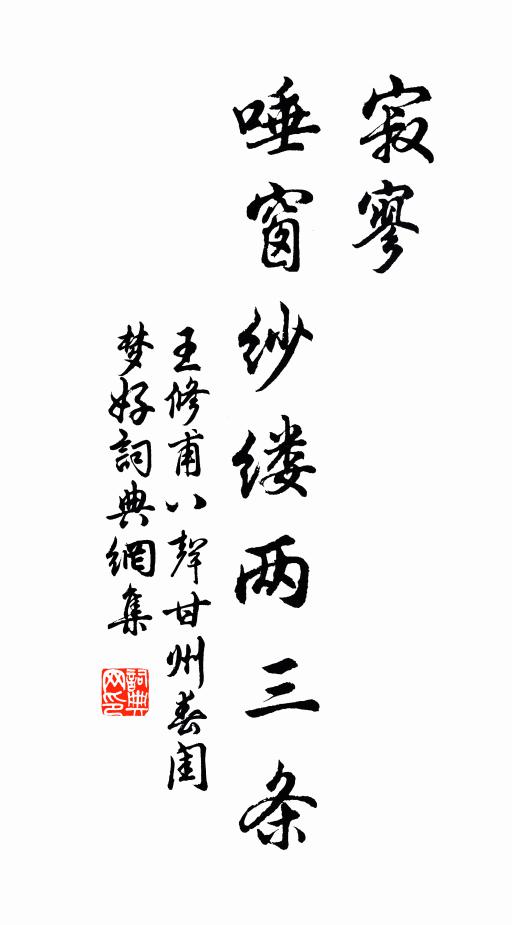 寂寥
唾窗纱缕两三条
王修甫八聲甘州春闺
梦好詞典網集
詞典网印